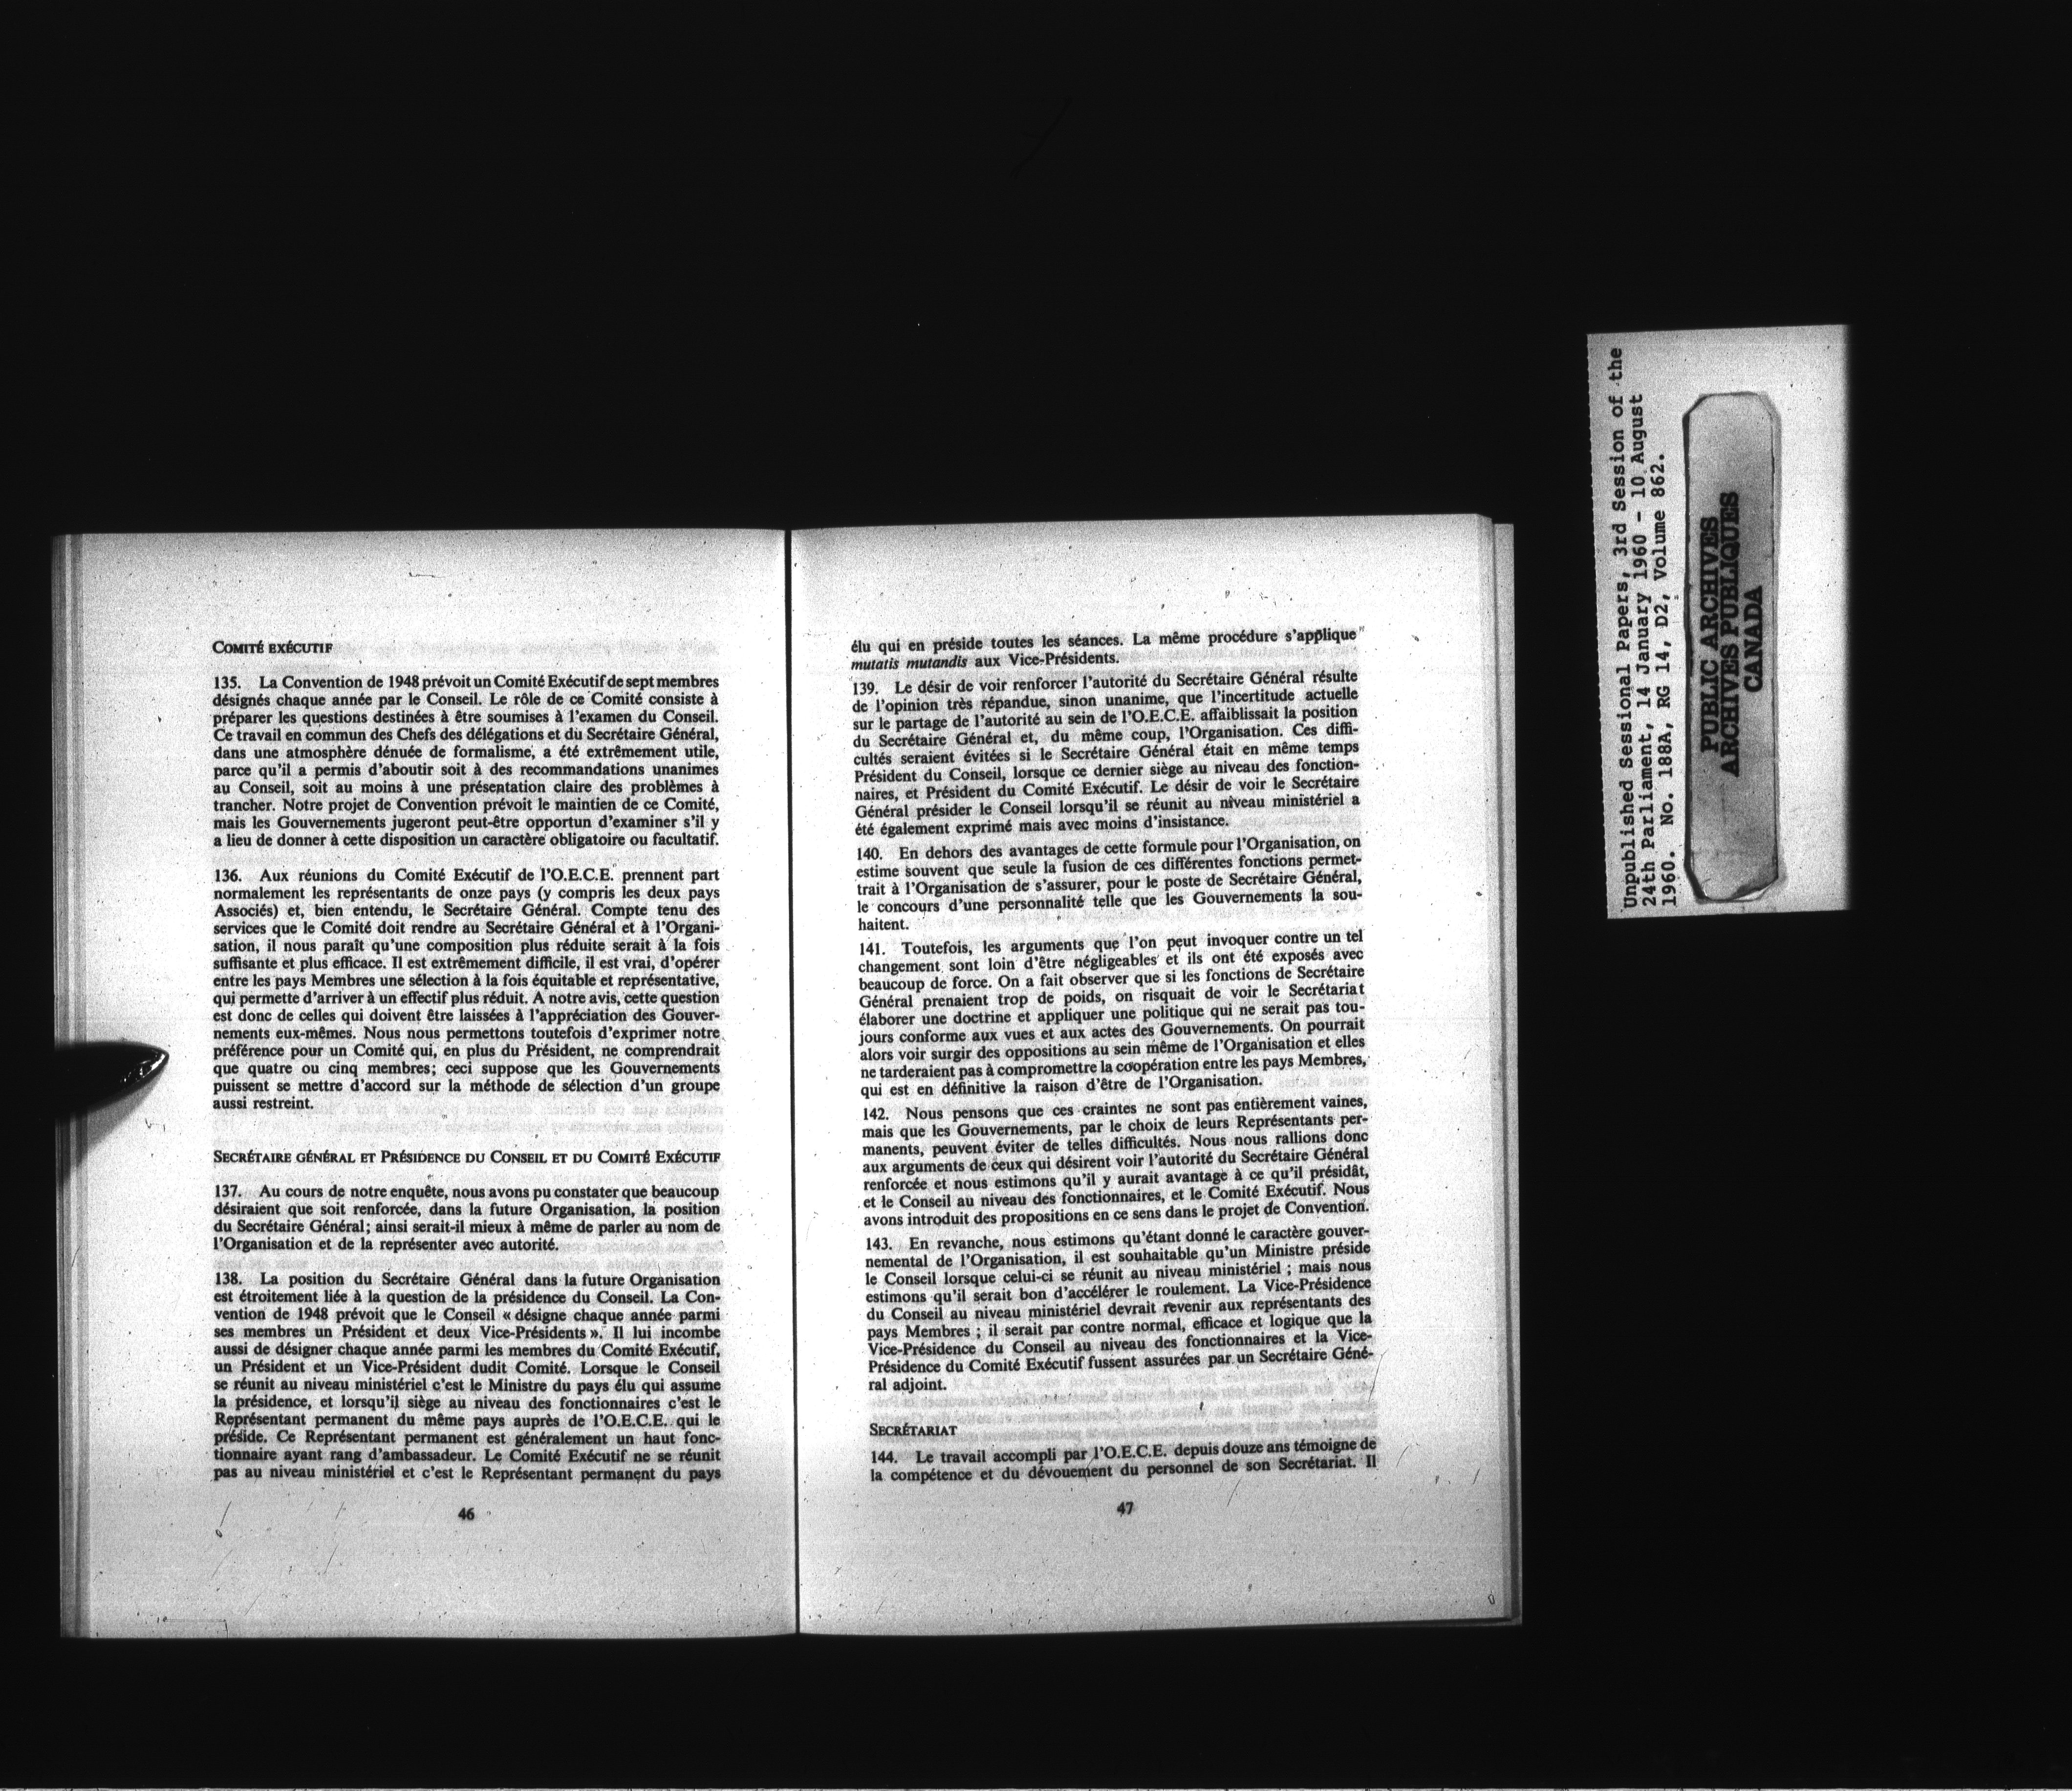 COMITÉ EXÉCUTIF
135. La Convention de 1948 prévoit un Comité Exécutif de sept membres
désignés chaque année par le Conseil. Le rôle de ce Comité consiste à
préparer les questions destinées à être soumises à l'examen du Conseil.
Ce travail en commun des Chefs des délégations et du Secrétaire Général,
dans une atmosphère dénuée de formalisme, a été extrêmement utile,
parce qu'il a permis d'aboutir soit à des recommandations unanimes
au Conseil, soit au moins à une présentation claire des problèmes à
trancher. Notre projet de Convention prévoit le maintien de ce Comité,
mais les Gouvernements jugeront peut-être opportun d'examiner s'il y
a lieu de donner à cette disposition un caractère obligatoire ou facultatif.
136. Aux réunions du Comité Exécutif de l'O.E.C.E. prennent part
normalement les représentants de onze pays (y compris les deux pays
Associés) et, bien entendu, le Secrétaire Général. Compte tenu des
services que le Comité doit rendre au Secrétaire Général et à l'Organi-
sation, il nous paraît qu'une composition plus réduite serait à la fois
suffisante et plus efficace. Il est extrêmement difficile, il est vrai, d'opérer
entre les pays Membres une sélection à la fois équitable et représentative,
qui permette d'arriver à un effectif plus réduit. A notre avis, cette question
est donc de celles qui doivent être laissées à l'appréciation des Gouver-
nements eux-mêmes. Nous nous permettons toutefois d'exprimer notre
préférence pour un Comité qui, en plus du Président, ne comprendrait
que quatre ou cinq membres; ceci suppose que les Gouvernements
puissent se mettre d'accord sur la méthode de sélection d'un groupe
aussi restreint.
SECRÉTAIRE GÉNÉRAL ET PRÉSIDENCE DU CONSEIL ET DU COMITÉ EXÉCUTIF
137. Au cours de notre enquête, nous avons pu constater que beaucoup
désiraient que soit renforcée, dans la future Organisation, la position
du Secrétaire Général; ainsi serait-il mieux à même de parler au nom de
l'Organisation et de la représenter avec autorité.
138. La position du Secrétaire Général dans la future Organisation
est étroitement liée à la question de la présidence du Conseil. La Con-
vention de 1948 prévoit que le Conseil « désigne chaque année parmi
ses membres un Président et deux Vice-Présidents ». Il lui incombe
aussi de désigner chaque année parmi les membres du Comité Exécutif,
un Président et un Vice-Président dudit Comité. Lorsque le Conseil
se réunit au niveau ministériel c'est le Ministre du pays élu qui assume
la présidence, et lorsqu'il siège au niveau des fonctionnaires c'est le
Représentant permanent du même pays auprès de l'O.E.C.E. qui le
préside. Ce Représentant permanent est généralement un haut fonc-
tionnaire ayant rang d'ambassadeur. Le Comité Exécutif ne se réunit
pas au niveau ministériel et c'est le Représentant permanent du pays
46
élu qui en préside toutes les séances. La même procédure s'applique
mutatis mutandis aux Vice-Présidents.
139. Le désir de voir renforcer l'autorité du Secrétaire Général résulte
de l'opinion très répandue, sinon unanime, que l'incertitude actuelle
sur le partage de l'autorité au sein de l'O.E.C.E. affaiblissait la position
du Secrétaire Général et, du même coup, l'Organisation. Ces diffi-
cultés seraient évitées si le Secrétaire Général était en même temps
Président du Conseil, lorsque ce dernier siège au niveau des fonction-
naires, et Président du Comité Exécutif. Le désir de voir le Secrétaire
Général présider le Conseil lorsqu'il se réunit au niveau ministériel a
été également exprimé mais avec moins d'insistance.
140. En dehors des avantages de cette formule pour l'Organisation, on
estime souvent que seule la fusion de ces différentes fonctions permet-
trait à l'Organisation de s'assurer, pour le poste de Secrétaire Général,
le concours d'une personnalité telle que les Gouvernements la sou-
haitent.
141. Toutefois, les arguments que l'on peut invoquer contre un tel
changement sont loin d'être négligeables et ils ont été exposés avec
beaucoup de force. On a fait observer que si les fonctions de Secrétaire
Général prenaient trop de poids, on risquait de voir le Secrétariat
élaborer une doctrine et appliquer une politique qui ne serait pas tou-
jours conforme aux vues et aux actes des Gouvernements. On pourrait
alors voir surgir des oppositions au sein même de l'Organisation et elles
ne tarderaient pas à compromettre la coopération entre les pays Membres,
qui est en définitive la raison d'être de l'Organisation.
142. Nous pensons que ces craintes ne sont pas entièrement vaines,
mais que les Gouvernements, par le choix de leurs Représentants per-
manents, peuvent éviter de telles difficultés. Nous nous rallions donc
aux arguments de ceux qui désirent voir l'autorité du Secrétaire Général
renforcée et nous estimons qu'il y aurait avantage à ce qu'il présidât,
et le Conseil au niveau des fonctionnaires, et le Comité Exécutif. Nous
avons introduit des propositions en ce sens dans le projet de Convention.
143. En revanche, nous estimons qu'étant donné le caractère gouver-
nemental de l'Organisation, il est souhaitable qu'un Ministre préside
le Conseil lorsque celui-ci se réunit au niveau ministériel ; mais nous
estimons qu'il serait bon d'accélérer le roulement. La Vice-Présidence
du Conseil au niveau ministériel devrait revenir aux représentants des
pays Membres ; il serait par contre normal, efficace et logique que la
Vice-Présidence du Conseil au niveau des fonctionnaires et la Vice-
Présidence du Comité Exécutif fussent assurées par un Secrétaire Géné-
ral adjoint.
SECRÉTARIAT
144. Le travail accompli par l'O.E.C.E. depuis douze ans témoigne de
la compétence et du dévouement du personnel de son Secrétariat. Il
47
Unpublished Sessional Papers, 3rd Session of the
24th Parliament, 14 January 1960 - 10 August
1960. No. 188A, RG 14, D2, Volume 862.
PUBLIC ARCHIVES
ARCHIVES PUBLIQUES
CANADA